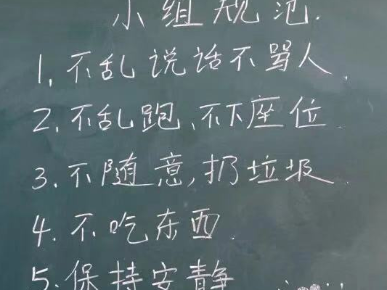 小组规范.
1. 不乱说话不骂人.
2. 不乱跑、不下座位.
3. 不随意,扔垃圾.
4. 不吃东西.
5. 保持安静